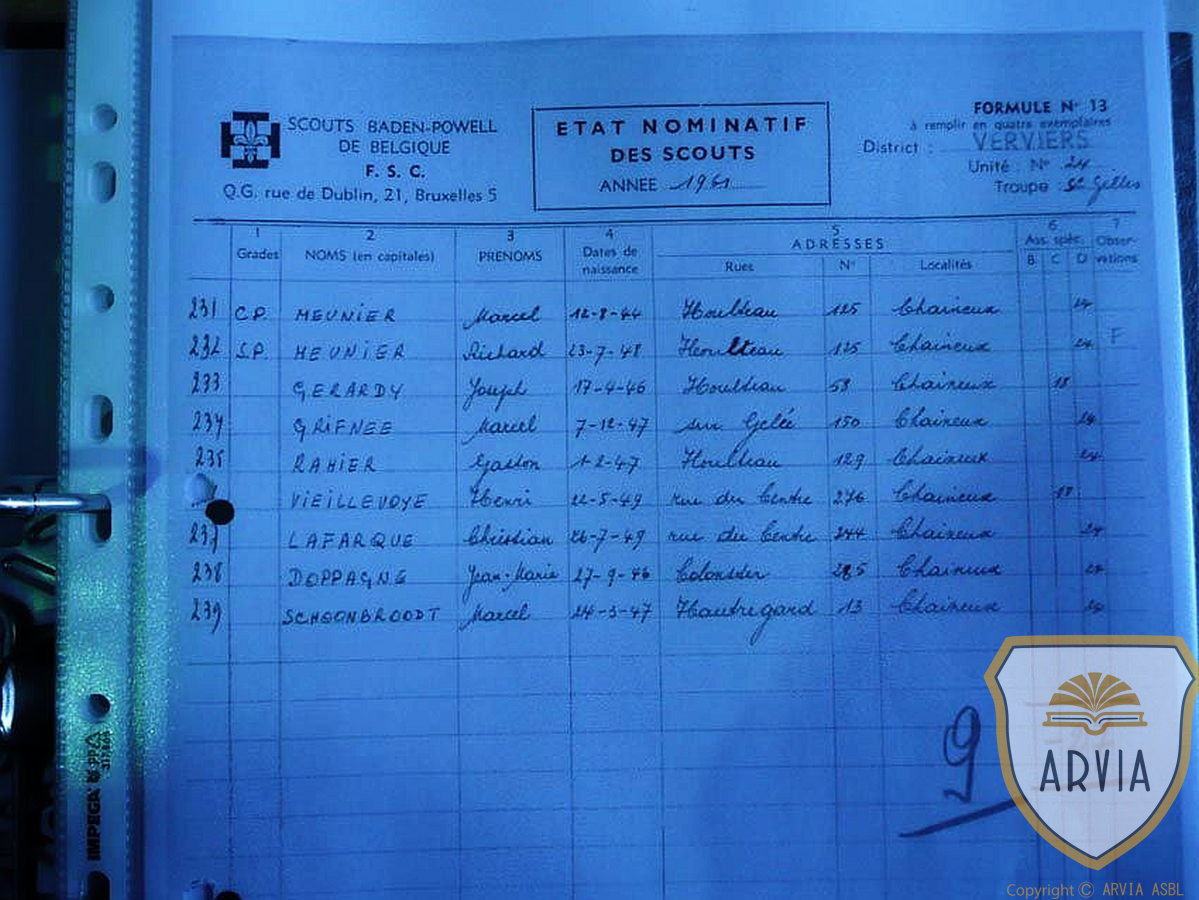 SCOUTS BADEN-POWELL
DE BELGIQUE
F. S. C.
Q.G. rue de Dublin, 21, Bruxelles 5
ETAT NOMINATIF
DES SCOUTS
ANNEE 1961
FORMULE N° 13
à remplir en quatre exemplaires
District : VERVIERS
Unité : N° 24
Troupe : St Gilles
1 2 3 4 5 6 7
Grades NOMS (en capitales) PRENOMS Dates de naissance ADRESSES Ass. spéc. Obser-vations
Rues N° Localités B C D
231 C.P. MEUNIER Marcel 12-8-44 Houlteau 125 Chaineux 24
232 S.P. MEUNIER Richard 23-7-48 Houlteau 125 Chaineux 24 F
233 GERARDY Joseph 17-4-46 Houlteau 58 Chaineux 18
234 GRIFNEE Marcel 7-12-47 sur Gelée 150 Chaineux 24
235 RAHIER Gaston 1-2-47 Houlteau 129 Chaineux 24
VIEILLEVOYE Henri 22-5-49 rue du Centre 276 Chaineux 18
237 LAFARQUE Christian 26-7-49 rue du Centre 244 Chaineux 24
238 DOPPAGNE Jean-Marie 27-9-46 Colonster 285 Chaineux 24
239 SCHOONBROODT Marcel 24-3-47 Hautregard 13 Chaineux 24
9
IMPEGA PP
ARVIA
Copyright © ARVIA ASBL